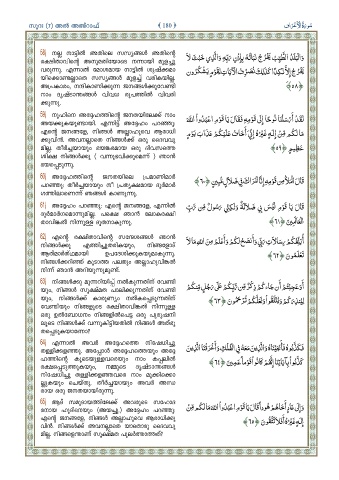 സൂറ (7) അൽ അഅ്റാഫ്
( 180 )
سورة الأعراف
58) നല്ല നാട്ടിൽ അതിലെ സസ്യങ്ങൾ അതിന്റെ
രക്ഷിതാവിന്റെ അനുമതിയോടെ നന്നായി മുളച്ചു
വരുന്നു. എന്നാൽ മോശമായ നാട്ടിൽ ശുഷ്കമാ
യിട്ടല്ലാതെ സസ്യങ്ങൾ മുളച്ച് വരികയില്ല.
അപ്രകാരം, നന്ദികാണിക്കുന്ന ജനങ്ങൾക്കുവേണ്ടി
നാം ദൃഷ്ടാന്തങ്ങൾ വിവിധ രൂപത്തിൽ വിവരി
ക്കുന്നു.
وَالْبَلَدُ الطَّيِّبُ يَخْرُجُ نَبَاتُهُ بِإِذْنِ رَبِّهِ وَالَّذِي خَبُثَ لَا
يَخْرُجُ إِلَّا نَكِدًا كَذَلِكَ نُصَرِّفُ الْآيَاتِ لِقَوْمٍ يَشْكُرُونَ
﴿٥٨﴾
59) നൂഹിനെ അദ്ദേഹത്തിന്റെ ജനതയിലേക്ക് നാം
അയക്കുകയുണ്ടായി. എന്നിട്ട് അദ്ദേഹം പറഞ്ഞു:
എന്റെ ജനങ്ങളേ, നിങ്ങൾ അല്ലാഹുവെ ആരാധി
ക്കുവിൻ. അവനല്ലാതെ നിങ്ങൾക്ക് ഒരു ദൈവവു
മില്ല. തീർച്ചയായും ഭയങ്കരമായ ഒരു ദിവസത്തെ
ശിക്ഷ നിങ്ങൾക്കു ( വന്നുഭവിക്കുമെന്ന് ) ഞാൻ
ഭയപ്പെടുന്നു.
لَقَدْ أَرْسَلْنَا نُوحًا إِلَى قَوْمِهِ فَقَالَ يَا قَوْمِ اعْبُدُوا اللَّهَ
مَا لَكُمْ مِنْ إِلَهٍ غَيْرُهُ إِنِّي أَخَافُ عَلَيْكُمْ عَذَابَ يَوْمٍ
عَظِيمٍ ﴿٥٩﴾
60) അദ്ദേഹത്തിന്റെ ജനതയിലെ പ്രമാണിമാർ
പറഞ്ഞു: തീർച്ചയായും നീ പ്രത്യക്ഷമായ ദുർമാർ
ഗത്തിലാണെന്ന് ഞങ്ങൾ കാണുന്നു.
قَالَ الْمَلَأُ مِنْ قَوْمِهِ إِنَّا لَنَرَاكَ فِي ضَلَالٍ مُبِينٍ ﴿٦٠﴾
61) അദ്ദേഹം പറഞ്ഞു: എന്റെ ജനങ്ങളേ, എന്നിൽ
ദുർമാർഗമൊന്നുമില്ല. പക്ഷെ ഞാൻ ലോകരക്ഷി
താവിങ്കൽ നിന്നുള്ള ദൂതനാകുന്നു.
قَالَ يَا قَوْمِ لَيْسَ بِي ضَلَالَةٌ وَلَكِنِّي رَسُولٌ مِنْ رَبِّ
الْعَالَمِينَ ﴿٦١﴾
62) എന്റെ രക്ഷിതാവിന്റെ സന്ദേശങ്ങൾ ഞാൻ
നിങ്ങൾക്കു എത്തിച്ചുതരികയും, നിങ്ങളോട്
ആത്മാർത്ഥമായി ഉപദേശിക്കുകയുമാകുന്നു.
നിങ്ങൾക്കറിഞ്ഞ് കൂടാത്ത പലതും അല്ലാഹുവിങ്കൽ
നിന്ന് ഞാൻ അറിയുന്നുമുണ്ട്.
أُبَلِّغُكُمْ رِسَالَاتِ رَبِّي وَأَنْصَحُ لَكُمْ وَأَعْلَمُ مِنَ اللَّهِ مَا لَا
تَعْلَمُونَ ﴿٦٢﴾
63) നിങ്ങൾക്കു മുന്നറിയിപ്പ് നൽകുന്നതിന് വേണ്ടി
യും, നിങ്ങൾ സൂക്ഷ്മത പാലിക്കുന്നതിന് വേണ്ടി
യും, നിങ്ങൾക്ക് കാരുണ്യം നൽകപ്പെടുന്നതിന്
വേണ്ടിയും നിങ്ങളുടെ രക്ഷിതാവിങ്കൽ നിന്നുള്ള
ഒരു ഉൽബോധനം നിങ്ങളിൽപെട്ട ഒരു പുരുഷനി
ലൂടെ നിങ്ങൾക്ക് വന്നുകിട്ടിയതിൽ നിങ്ങൾ അത്ഭു
തപ്പെടുകയാണോ?
أَوَعَجِبْتُمْ أَنْ جَاءَكُمْ ذِكْرٌ مِنْ رَبِّكُمْ عَلَى رَجُلٍ مِنْكُمْ
لِيُنْذِرَكُمْ وَلِتَتَّقُوا وَلَعَلَّكُمْ تُرْحَمُونَ ﴿٦٣﴾
64) എന്നാൽ അവർ അദ്ദേഹത്തെ നിഷേധിച്ചു
തള്ളിക്കളഞ്ഞു. അപ്പോൾ അദ്ദേഹത്തെയും അദ്ദേ
ഹത്തിന്റെ കൂടെയുള്ളവരെയും നാം കപ്പലിൽ
രക്ഷപ്പെടുത്തുകയും, നമ്മുടെ ദൃഷ്ടാന്തങ്ങൾ
നിഷേധിച്ചു തള്ളിക്കളഞ്ഞവരെ നാം മുക്കിക്കൊ
ല്ലുകയും ചെയ്തു. തീർച്ചയായും അവർ അന്ധ
രായ ഒരു ജനതയായിരുന്നു.
فَكَذَّبُوهُ فَأَنْجَيْنَاهُ وَالَّذِينَ مَعَهُ فِي الْفُلْكِ وَأَغْرَقْنَا الَّذِينَ
كَذَّبُوا بِآيَاتِنَا إِنَّهُمْ كَانُوا قَوْمًا عَمِينَ ﴿٦٤﴾
65) ആദ് സമുദായത്തിലേക്ക് അവരുടെ സഹോദ
രനായ ഹൂദിനെയും (അയച്ചു.) അദ്ദേഹം പറഞ്ഞു:
എന്റെ ജനങ്ങളേ, നിങ്ങൾ അല്ലാഹുവെ ആരാധിക്കു
വിൻ. നിങ്ങൾക്ക് അവനല്ലാതെ യാതൊരു ദൈവവു
മില്ല. നിങ്ങളെന്താണ് സൂക്ഷ്മത പുലർത്താത്തത്?
وَإِلَى عَادٍ أَخَاهُمْ هُودًا قَالَ يَا قَوْمِ اعْبُدُوا اللَّهَ مَا لَكُمْ مِنْ
إِلَهٍ غَيْرُهُ أَفَلَا تَتَّقُونَ ﴿٦٥﴾